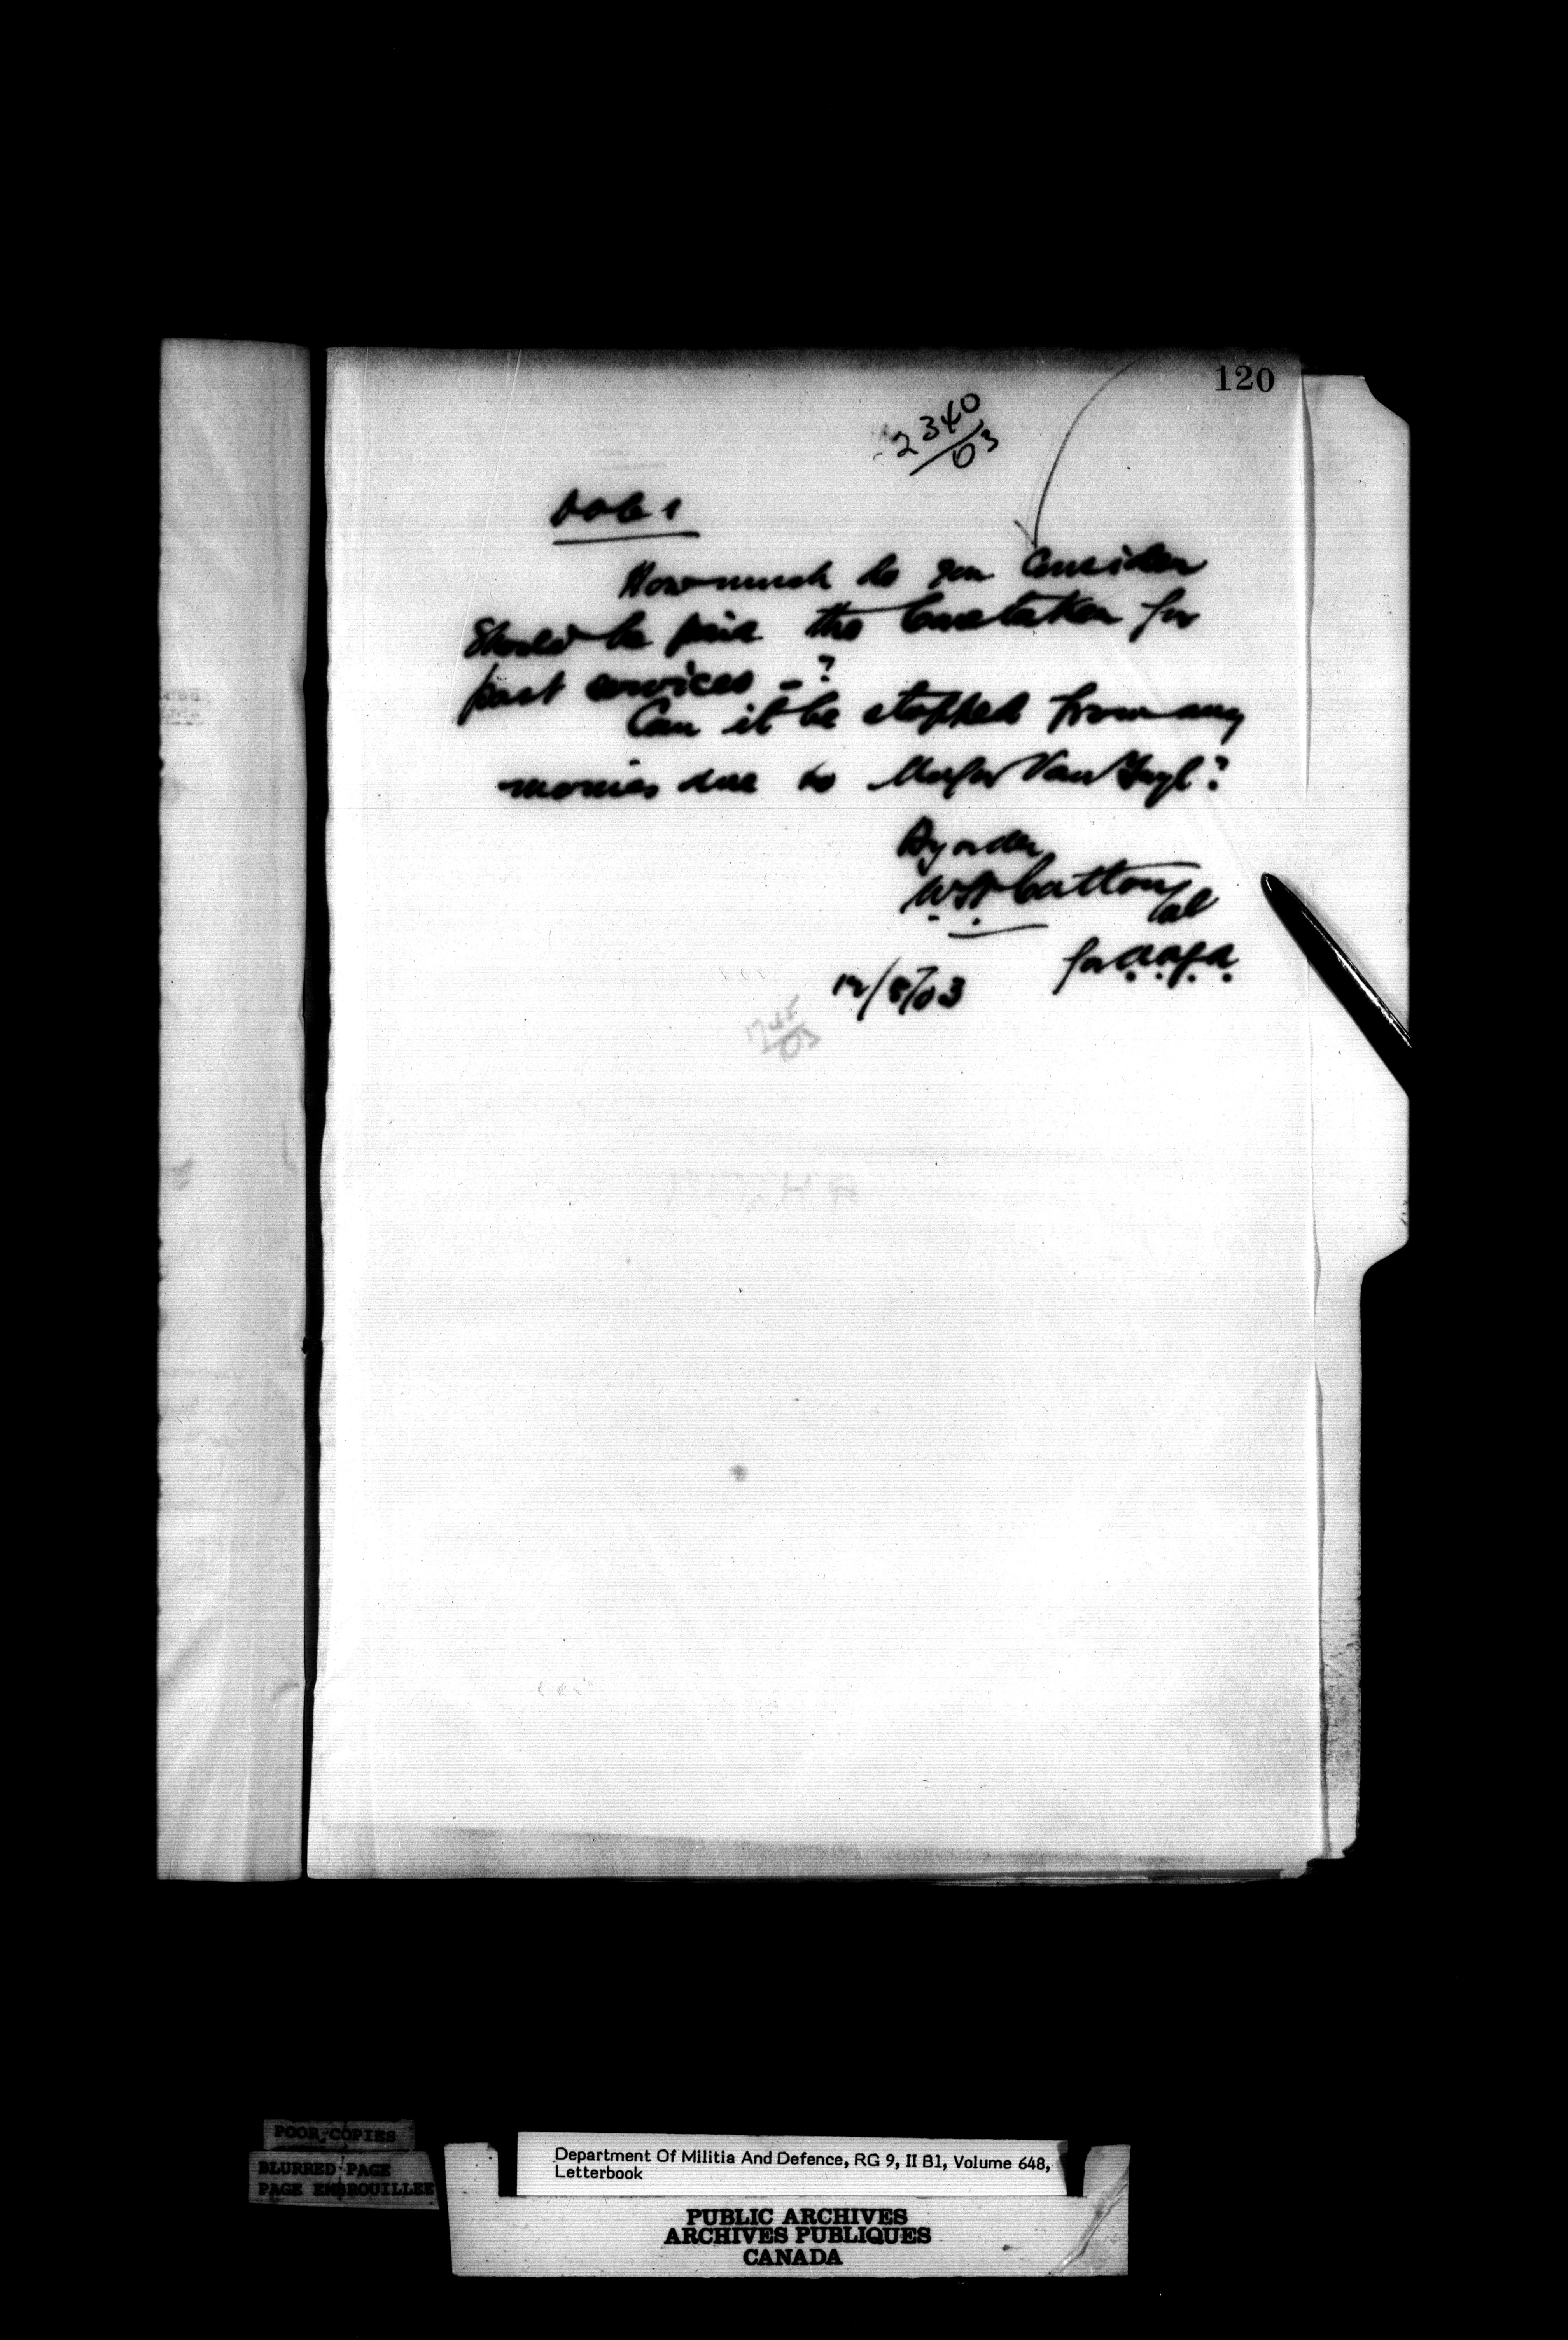 120
2340/03
DOC 1
How much do you consider
should be paid the Caretaker for
past services - ?
Can it be stopped from any
monies due to Major Van
By order
W. H. Cotton
for A.A.G.A.
12/8/03
745/03
POOR COPIES
BLURRED PAGE
PAGE EMBROUILLEE
Department Of Militia And Defence, RG 9, II B1, Volume 648,
Letterbook
PUBLIC ARCHIVES
ARCHIVES PUBLIQUES
CANADA